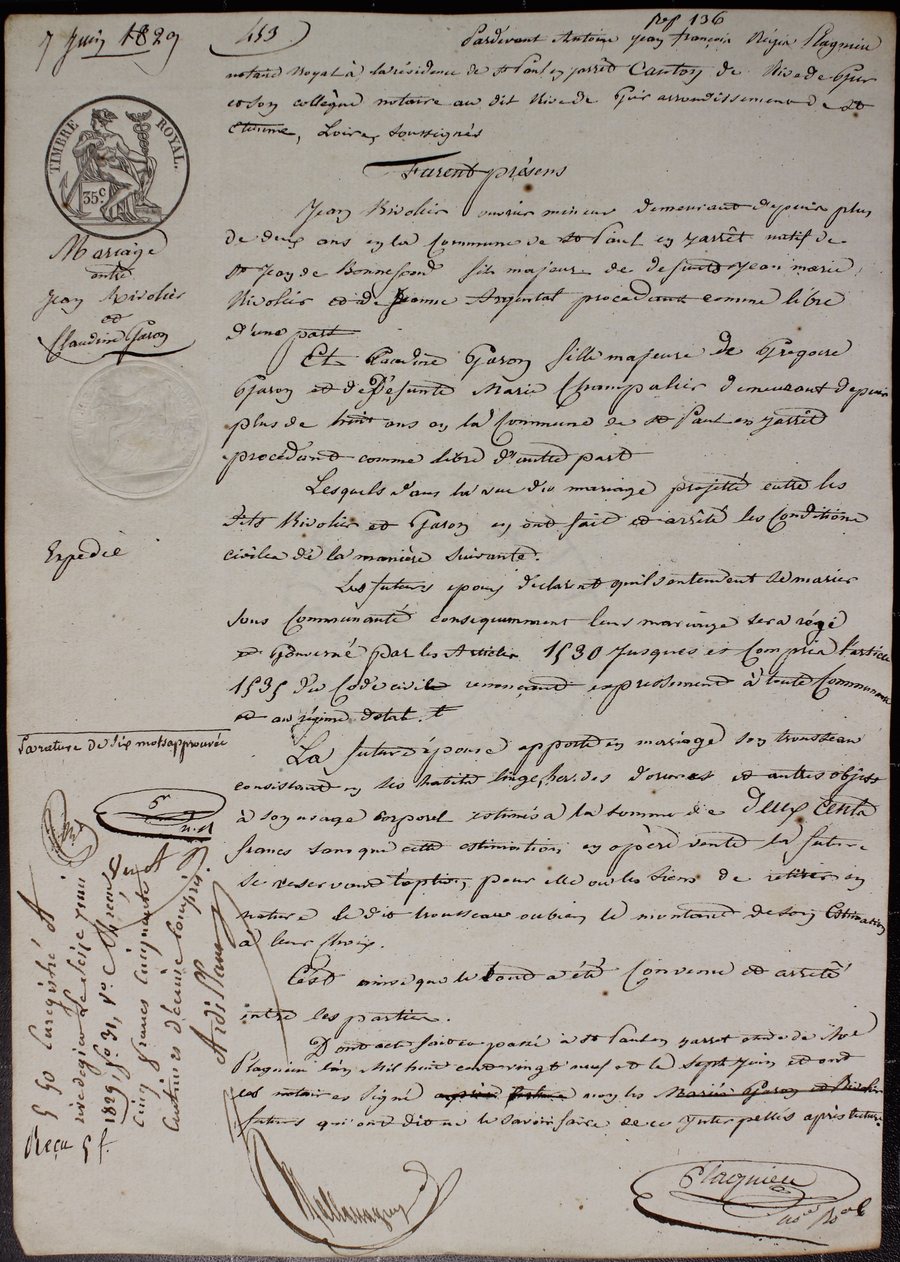 7 Juin 1829
453
Rep 136
Pardevant Antoine Jean françois Régis Plagnieu
notaire Royal à la résidence de St Paul en jarrêt Canton de Rive de Gier
et son collègue notaire au dit Rive de Gier arrondissement de St
Etienne, Loire, soussignés
TIMBRE ROYAL.
35 c.
Furent présens
Mariage
entre
Jean Rivolier
et
Claudine Garon
Jean Rivolier ouvrier mineur demeurant depuis plus
de deux ans en la Commune de St Paul en jarrêt natif de
St Jean de Bonnefond fils majeure de defunts Jean marie
Rivolier et de Jeanne Argental procedant comme libre
d'une part
Et Claudine Garon fille majeure de Grégoire
Garon et de Défunte Marie Champalier demeurant depuis
plus de huit ans en la Commune de St Paul en jarrêt
procédant comme libre d'autre part
Lesquels dans la vue du mariage projetté entre les
dits Rivolier et Garon en ont fait et arrêté les Conditions
civiles de la manière suivante.
Expédié
Les futurs epoux déclarent qu'ils entendent se marier
sous Communauté consequemment leur mariage sera régé
et Gouverné par les Articles 1530 jusques et Compris l'article
1535 du Code civil renonçant expressement à toute Communauté
et au régime dotal.
La rature de six mots approuvée
La future épouse apporte en mariage son trousseau
consistant en ses habits linge, hardes dorures et autres objets
à son usage Corporel estimés à la somme de Deux Cents
francs sans que cette estimation en opère vente la future
se reservant pour elle ou les siens de retirer en
nature le dit trousseau ou bien le montant de son Estimation
à leur choix.
C'est ainsi que le tout a été Convenu et arretté
entre les parties.
Dont acte fait et passé à St Paul en jarret etude de Me
Plagnieu l'an Mil huit cent vingt neuf et le sept Juin et ont
les notaires signé non les Mariés Garon et Rivolier
futurs qui ont dit ne le savoir faire de ce Interpellés après lecture
Enregistré à
Rive de gier le seize juin
1829, fo. 31, Vo. C
cinq francs cinquante
centimes décime compris.
Reçu 5 f.
Plagnieu
no.re Ro.al